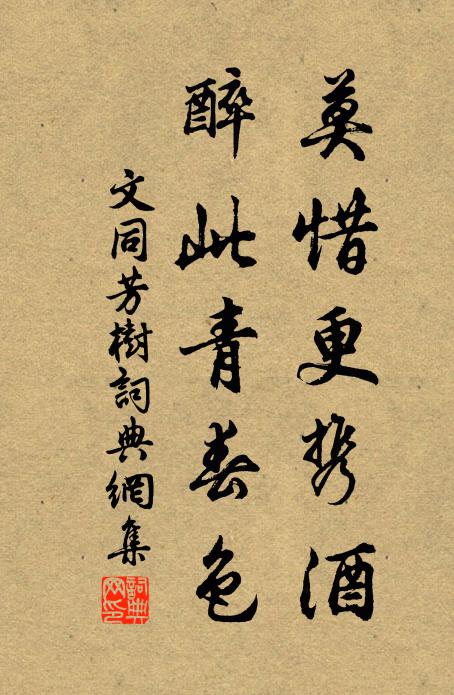 莫惜更携酒
醉此青春色
文同芳樹詞典網集
詞典網印